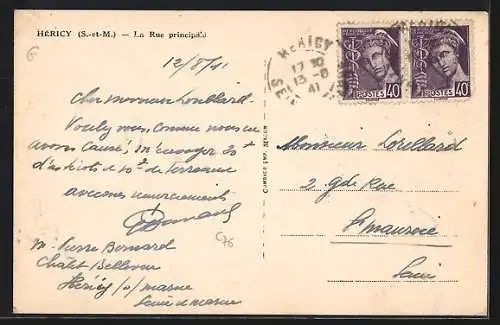 HÉRICY (S.-et-M.) — La Rue principale
HERICY
17 30
13 - 8
41
POSTES 40
POSTES 40
12/8/41
Cher monsieur Loullard
Voulez vous, comme nous en
avons causé, m'envoyer 20 k
d'haricots et 10 k de terreau
avec mes remerciements
Bernard
M. Pierre Bernard
Chalet Bellevue
Héricy s/ marne
Seine et marne
C76
Monsieur Lorillard
2 gde Rue
St maurice
Seine